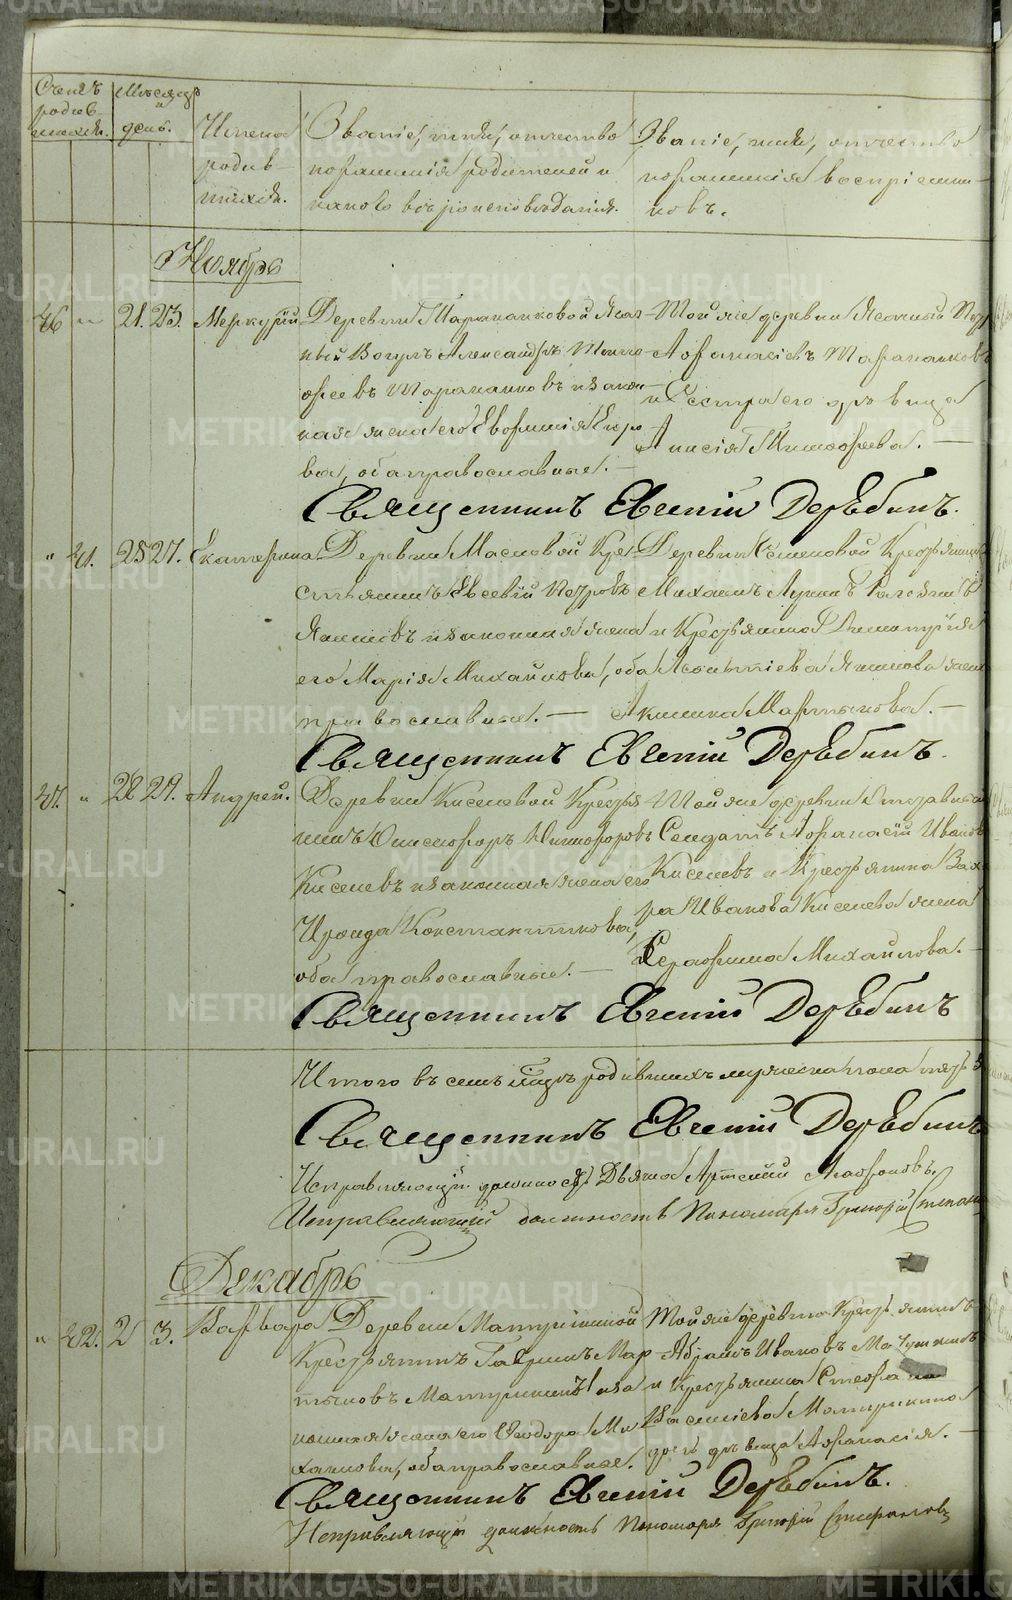 Счетъ родив-шихся.
Мѣсяцъ и день.
Имена родив-шихся.
Званіе, имя, отчество и фамилія родителей и какого вѣроисповѣданія.
Званіе, имя, отчество и фамилія воспріемни-ковъ.
Ноябрь
46 " 21. 23. Меркурій
Деревни Тараканковой Ясач-
ный Вогулъ Александръ Тимо-
феевъ Тараканковъ и закон-
ная жена его Евфимія
ва, оба православные. —
Той же деревни Ясачный
Афанасіевъ Тараканковъ
и Сестра его дѣвица
Анисія Тимофеева. —
Священникъ Евгеній Дерябинъ.
" 41. 25 27. Екатерина
Деревни Масловой Кре-
стьянинъ Евсевій Петровъ
Якимовъ и законная жена
его Марія Михайлова, оба
православные. —
Деревни Семеновой Крестьянинъ
Михаилъ Лукинъ
и Крестьянина Димитрія
Якимова жена
Акилина Мартынова. —
Священникъ Евгеній Дерябинъ.
47. " 28 29. Андрей.
Деревни Киселевой Крестья-
нинъ Онисифоръ Никифоровъ
Киселевъ и законная жена его
Ираида Константинова,
оба православные. —
Той же деревни отставный
Солдатъ Афанасій Ивановъ
Киселевъ и Крестьянина Заха-
ра Иванова Киселева жена
Серафима Михайлова. —
Священникъ Евгеній Дерябинъ
Итого въ семъ мѣсяцѣ родившихся мужеска пола
Священникъ Евгеній Дерябинъ
Исправляющій должность Дьячка Артемій
Исправляющій должность Пономаря Григорій
Декабрь
" 42. 2 3. Варвара
Деревни Матушкиной
Крестьянинъ Гавріилъ Мар-
тыновъ Матушкинъ и за-
конная жена его Ѳеодора Ми-
хайлова, оба православные.
Той же деревни Крестьянинъ
Абрамъ Ивановъ Матушкинъ
и Крестьянина Стефана
Василіева Матушкина
дочь дѣвица Афанасія. —
Священникъ Евгеній Дерябинъ.
Исправляющій должность Пономаря Григорій Стефановъ
METRIKI.GASO-URAL.RU